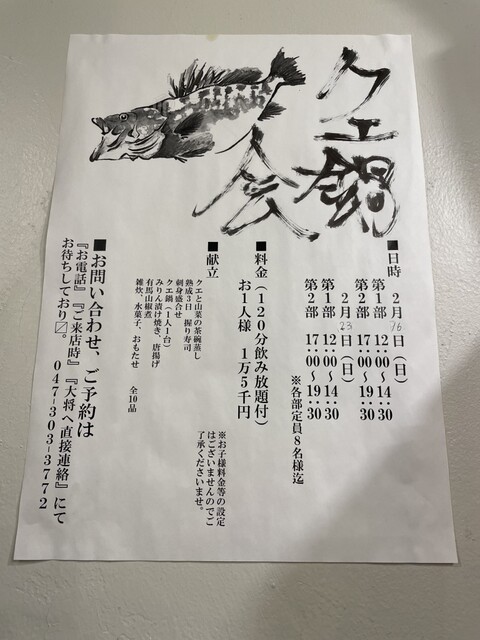 クエ鍋
会
■日時
2月16日(日)
第1部 12:00〜14:30
第2部 17:00〜19:30
2月23日(日)
第1部 12:00〜14:30
第2部 17:00〜19:30
※各部定員8名様迄
■料金(120分飲み放題付)
お1人様 1万5千円
※お子様料金等の設定
はございませんのでご
了承くださいませ。
■献立
クエと山菜の茶碗蒸し
熟成3日 握り寿司
刺身盛合せ
クエ鍋(1人1台)
みりん漬け焼き、唐揚げ
有馬山椒煮
雑炊、水菓子、おもたせ 全10品
■お問い合わせ、ご予約は
『お電話』『ご来店時』『大将へ直接連絡』にて
お待ちしており〼。 047-303-3772